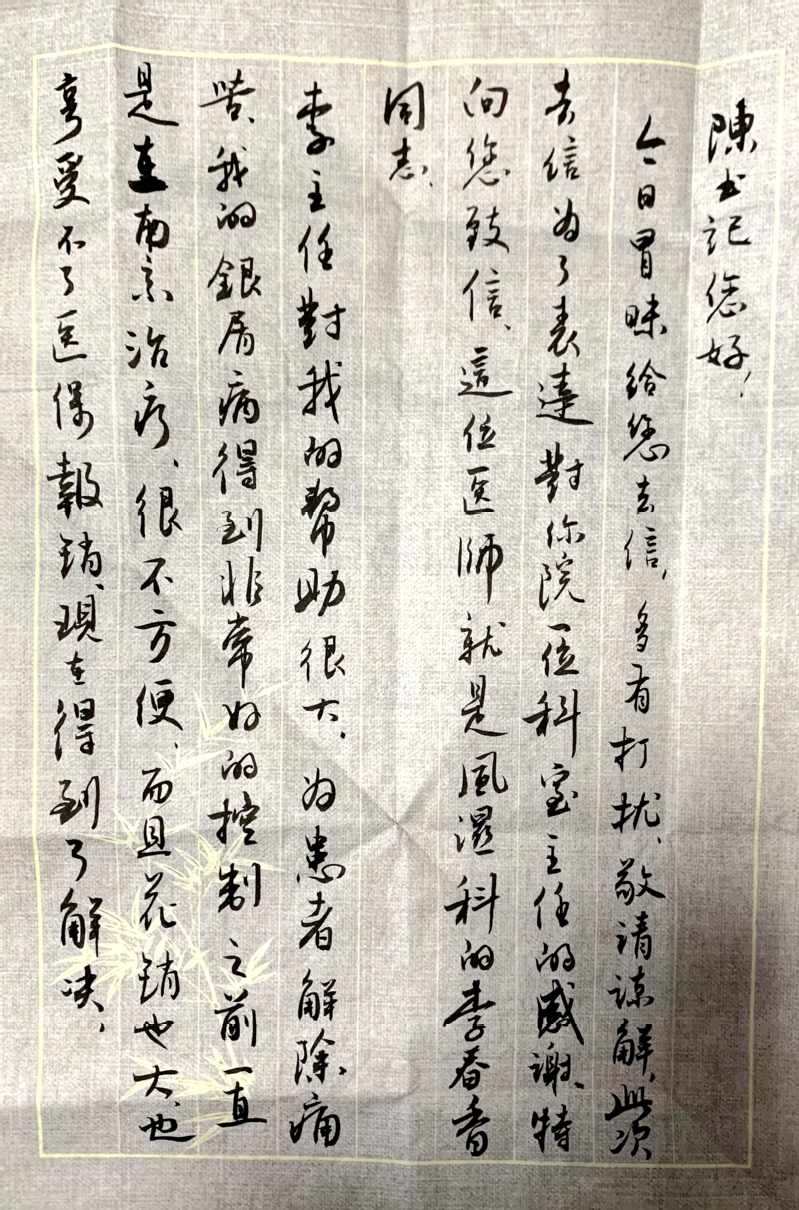 陳书記您好！
今日冒昧给您去信，多有打扰、敬请諒解，此次
去信为了表達對你院一位科室主任的感謝、特
向您致信、這位医师就是風濕科的李春香
同志、
李主任對我的帮助很大、为患者解除痛
苦、我的銀屑病得到非常好的控制之前一直
是在南京治疗、很不方便、而且花销也大、也
享受不了医保報销、現在得到了解决，